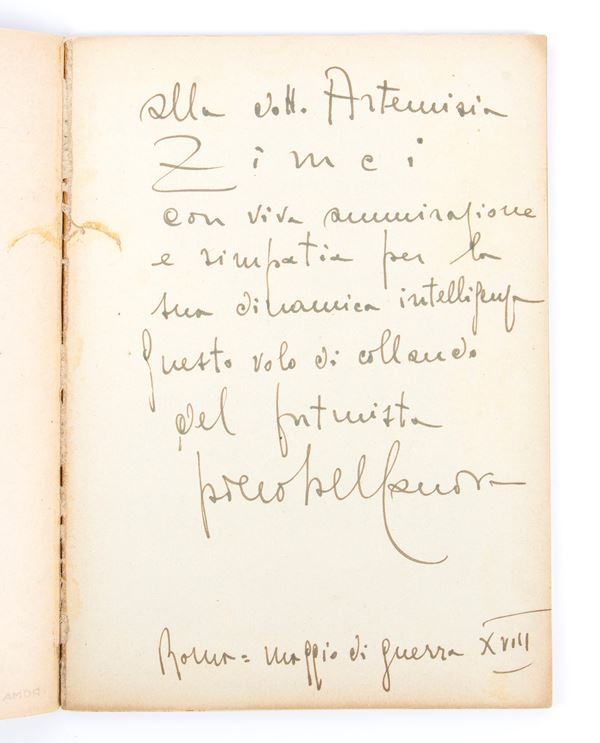 alla dott. Artemisia
Zimei
con viva ammirazione
e simpatia per la
sua dinamica intelligenza
Questo volo di collaudo
del futurista
Roma = maggio di guerra XVIII
AMOR